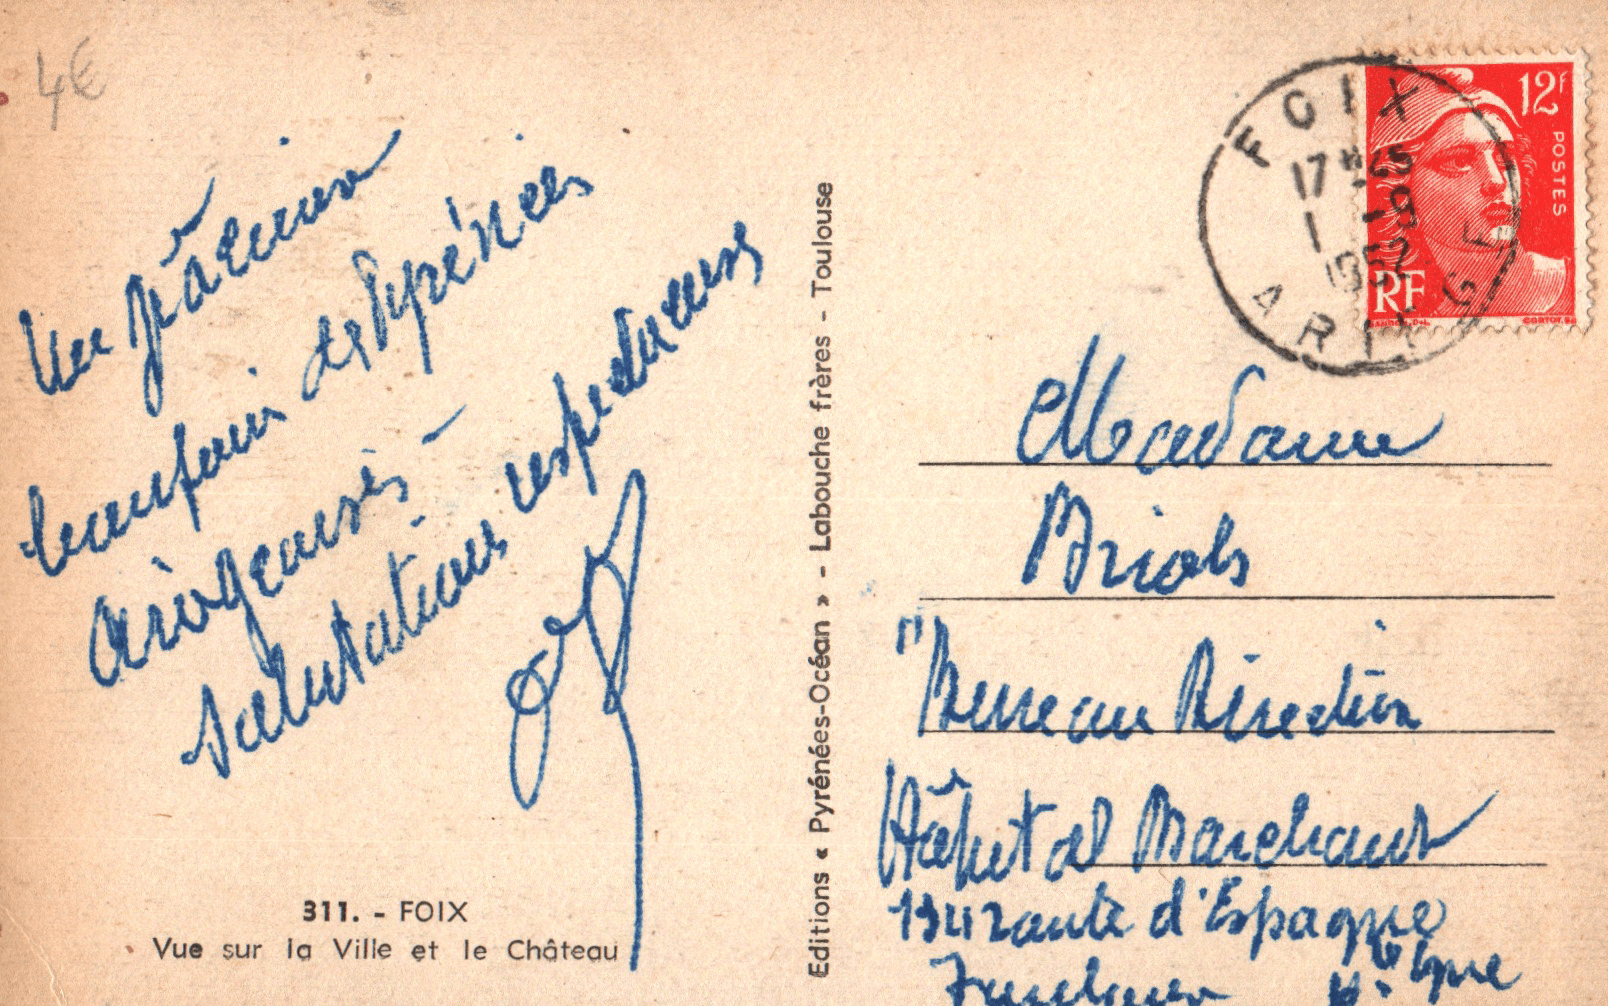 4€
Un gracieux
bonjour des Pyrénées
ariégeoises -
salutations respectueuses
311. - FOIX
Vue sur la Ville et le Château
Editions « Pyrénées-Océan » - Labouche frères - Toulouse
FOIX
17 H
1 - 9
1952
ARIEGE
12F
POSTES
RF
Madame
Briols
"Bureau Direction
Hôpital Marchant
134 route d'Espagne
Toulouse Hte Gne